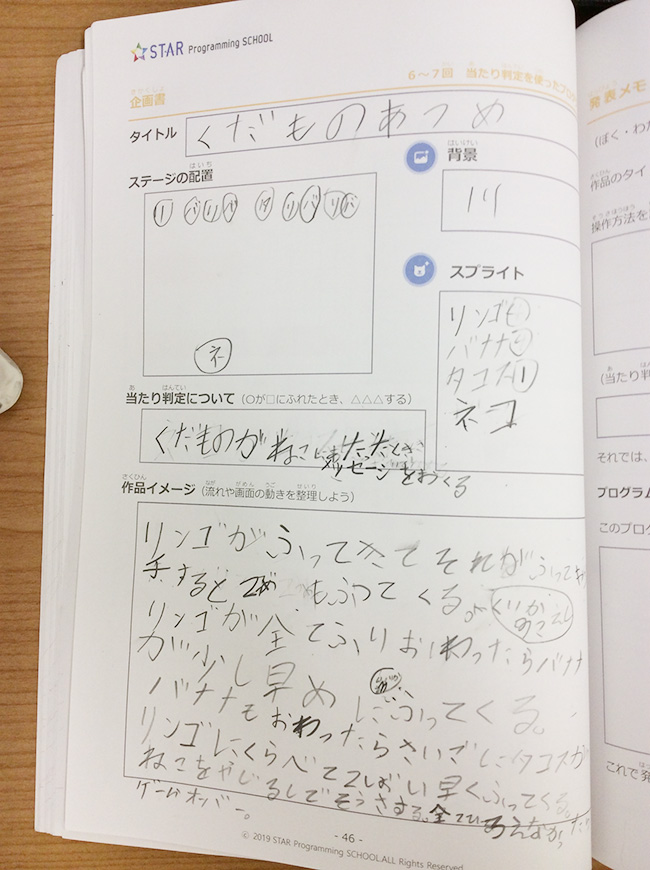 STAR Programming SCHOOL
きかくしょ
企画書
6～7回 当たり判定を使ったプロ
タイトル くだものあつめ
はいち
ステージの配置
リ バ リ ヤ タ リ バ リ
ネ
はいけい
背景
川
スプライト
リンゴ
バナナ
タコス 1
ネコ
あ はんてい
当たり判定について（○が□にふれたとき、△△△する）
くだものがねこに
たとき
メッセージをおくる
さくひん なが がめん うご せいり
作品イメージ（流れや画面の動きを整理しよう）
リンゴがふってきてそれがふってき
手すると2こめもふってくる。くりかえし
リンゴが全てふりおわったらバナナ
が少し早めにふってくる。
バナナもおわったらさいごにタコスが
リンゴにくらべて2ばい早くふってくる。
ねこをやじるしでそうさする。全て
ゲームオンバー。
- 46 -
© 2019 STAR Programming SCHOOL.ALL Rights Reserved
発表メモ
（ぼく・わた
作品のタイ
操作方法を
（当たり判
それでは、
プログラム
このプロク
これで発